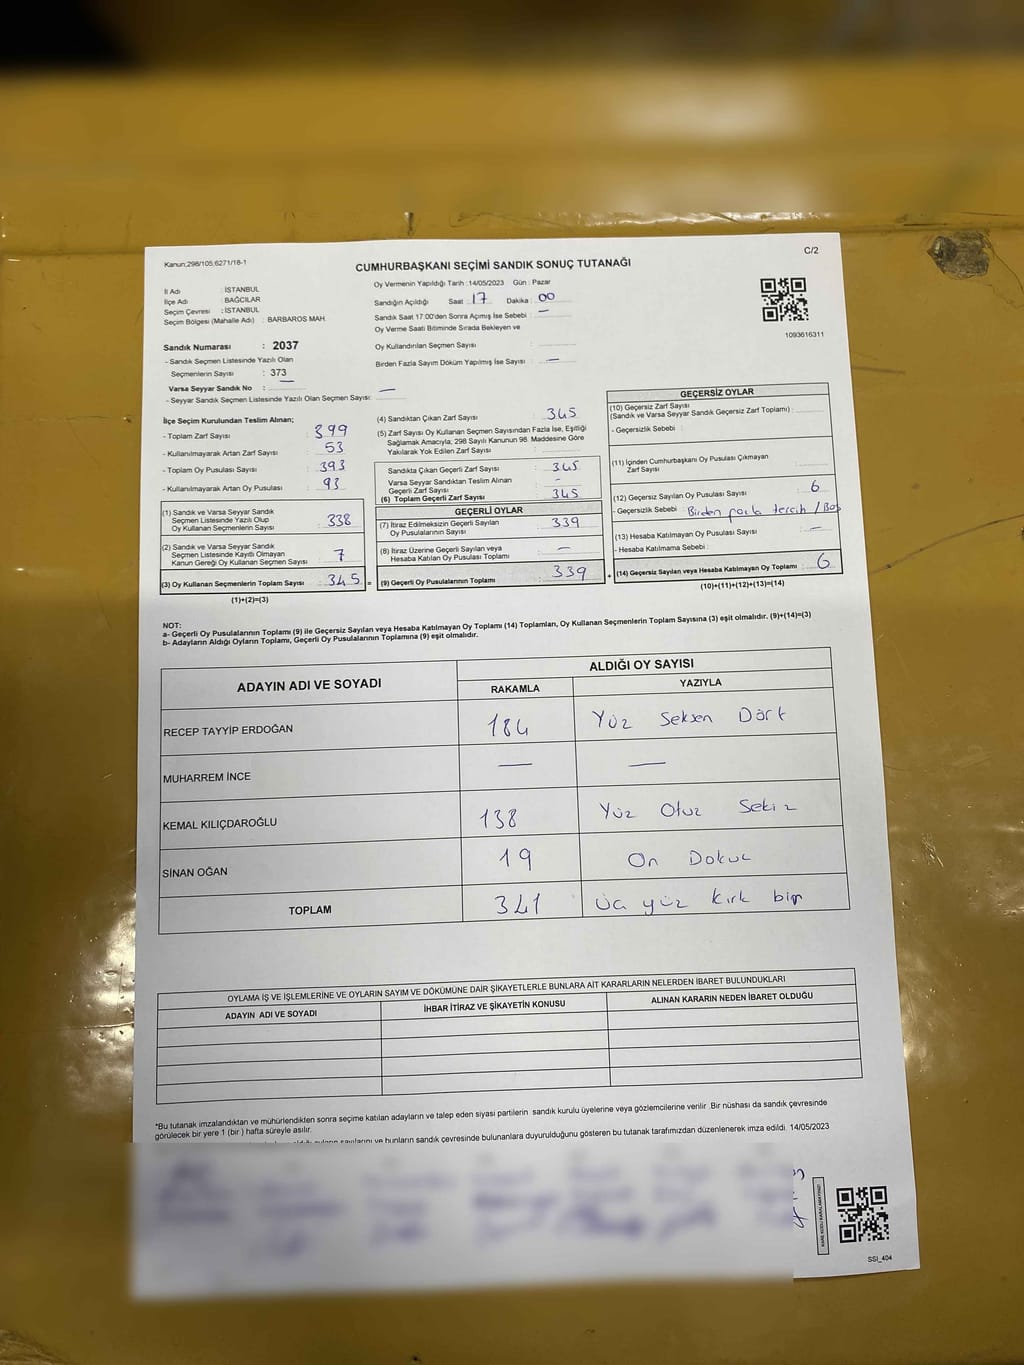 Kanun;298/105,6271/18-1
C/2
CUMHURBAŞKANI SEÇİMİ SANDIK SONUÇ TUTANAĞI
İl Adı : İSTANBUL
İlçe Adı : BAĞCILAR
Seçim Çevresi : İSTANBUL
Seçim Bölgesi (Mahalle Adı) : BARBAROS MAH.
Oy Vermenin Yapıldığı Tarih :14/05/2023 Gün : Pazar
Sandığın Açıldığı Saat : 17 Dakika : 00
Sandık Saat 17:00'den Sonra Açımış İse Sebebi : —
Oy Verme Saati Bitiminde Sırada Bekleyen ve
Oy Kullandırılan Seçmen Sayısı :
Birden Fazla Sayım Döküm Yapılmış İse Sayısı : —
1093616311
Sandık Numarası : 2037
- Sandık Seçmen Listesinde Yazılı Olan
Seçmenlerin Sayısı : 373
Varsa Seyyar Sandık No : —
- Seyyar Sandık Seçmen Listesinde Yazılı Olan Seçmen Sayısı: —
İlçe Seçim Kurulundan Teslim Alınan;
- Toplam Zarf Sayısı : 399
- Kullanılmayarak Artan Zarf Sayısı : 53
- Toplam Oy Pusulası Sayısı : 393
- Kullanılmayarak Artan Oy Pusulası : 93
(1) Sandık ve Varsa Seyyar Sandık
Seçmen Listesinde Yazılı Olup
Oy Kullanan Seçmenlerin Sayısı : 338
(2) Sandık ve Varsa Seyyar Sandık
Seçmen Listesinde Kayıtlı Olmayan
Kanun Gereği Oy Kullanan Seçmen Sayısı : 7
(3) Oy Kullanan Seçmenlerin Toplam Sayısı : 345 =
(1)+(2)=(3)
(4) Sandıktan Çıkan Zarf Sayısı : 345
(5) Zarf Sayısı Oy Kullanan Seçmen Sayısından Fazla İse, Eşitliği
Sağlamak Amacıyla, 298 Sayılı Kanunun 98. Maddesine Göre
Yakılarak Yok Edilen Zarf Sayısı :
Sandıkta Çıkan Geçerli Zarf Sayısı : 345
Varsa Seyyar Sandıktan Teslim Alınan
Geçerli Zarf Sayısı : -
(6) Toplam Geçerli Zarf Sayısı : 345
GEÇERLİ OYLAR
(7) İtiraz Edilmeksizin Geçerli Sayılan
Oy Pusulalarının Sayısı : 339
(8) İtiraz Üzerine Geçerli Sayılan veya
Hesaba Katılan Oy Pusulası Toplamı : —
(9) Geçerli Oy Pusulalarının Toplamı : 339 +
GEÇERSİZ OYLAR
(10) Geçersiz Zarf Sayısı
(Sandık ve Varsa Seyyar Sandık Geçersiz Zarf Toplamı) :
- Geçersizlik Sebebi :
(11) İçinden Cumhurbaşkanı Oy Pusulası Çıkmayan
Zarf Sayısı :
(12) Geçersiz Sayılan Oy Pusulası Sayısı : 6
- Geçersizlik Sebebi : Birden fazla tercih / Boş
(13) Hesaba Katılmayan Oy Pusulası Sayısı : —
- Hesaba Katılmama Sebebi :
(14) Geçersiz Sayılan veya Hesaba Katılmayan Oy Toplamı : 6
(10)+(11)+(12)+(13)=(14)
NOT:
a- Geçerli Oy Pusulalarının Toplamı (9) ile Geçersiz Sayılan veya Hesaba Katılmayan Oy Toplamı (14) Toplamları, Oy Kullanan Seçmenlerin Toplam Sayısına (3) eşit olmalıdır. (9)+(14)=(3)
b- Adayların Aldığı Oyların Toplamı, Geçerli Oy Pusulalarının Toplamına (9) eşit olmalıdır.
ADAYIN ADI VE SOYADI ALDIĞI OY SAYISI
RAKAMLA YAZIYLA
RECEP TAYYİP ERDOĞAN 184 Yüz Seksen Dört
MUHARREM İNCE — —
KEMAL KILIÇDAROĞLU 138 Yüz Otuz Sekiz
SİNAN OĞAN 19 On Dokuz
TOPLAM 341 Üç yüz kırk bir
OYLAMA İŞ VE İŞLEMLERİNE VE OYLARIN SAYIM VE DÖKÜMÜNE DAİR ŞİKAYETLERLE BUNLARA AİT KARARLARIN NELERDEN İBARET BULUNDUKLARI
ADAYIN ADI VE SOYADI İHBAR İTİRAZ VE ŞİKAYETİN KONUSU ALINAN KARARIN NEDEN İBARET OLDUĞU
*Bu tutanak imzalandıktan ve mühürlendikten sonra seçime katılan adayların ve talep eden siyasi partilerin sandık kurulu üyelerine veya gözlemcilerine verilir .Bir nüshası da sandık çevresinde
görülecek bir yere 1 (bir ) hafta süreyle asılır.
ve bunların sandık çevresinde bulunanlara duyurulduğunu gösteren bu tutanak tarafımızdan düzenlenerek imza edildi. 14/05/2023
SSI_404